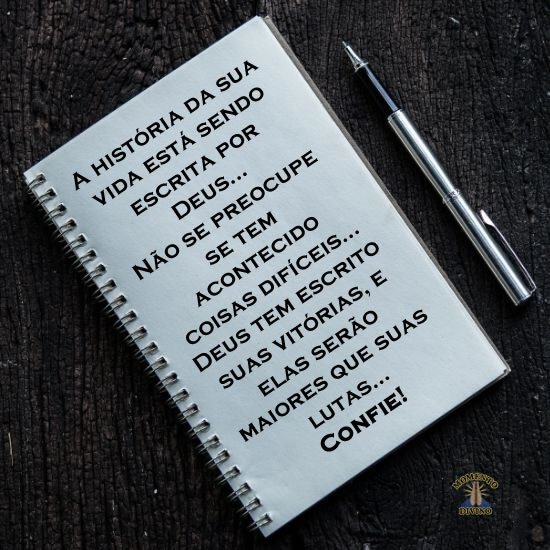 A história da sua
vida está sendo
escrita por
Deus...
Não se preocupe
se tem
acontecido
coisas difíceis...
Deus tem escrito
suas vitórias, e
elas serão
maiores que suas
lutas...
Confie!
MOMENTO
DIVINO